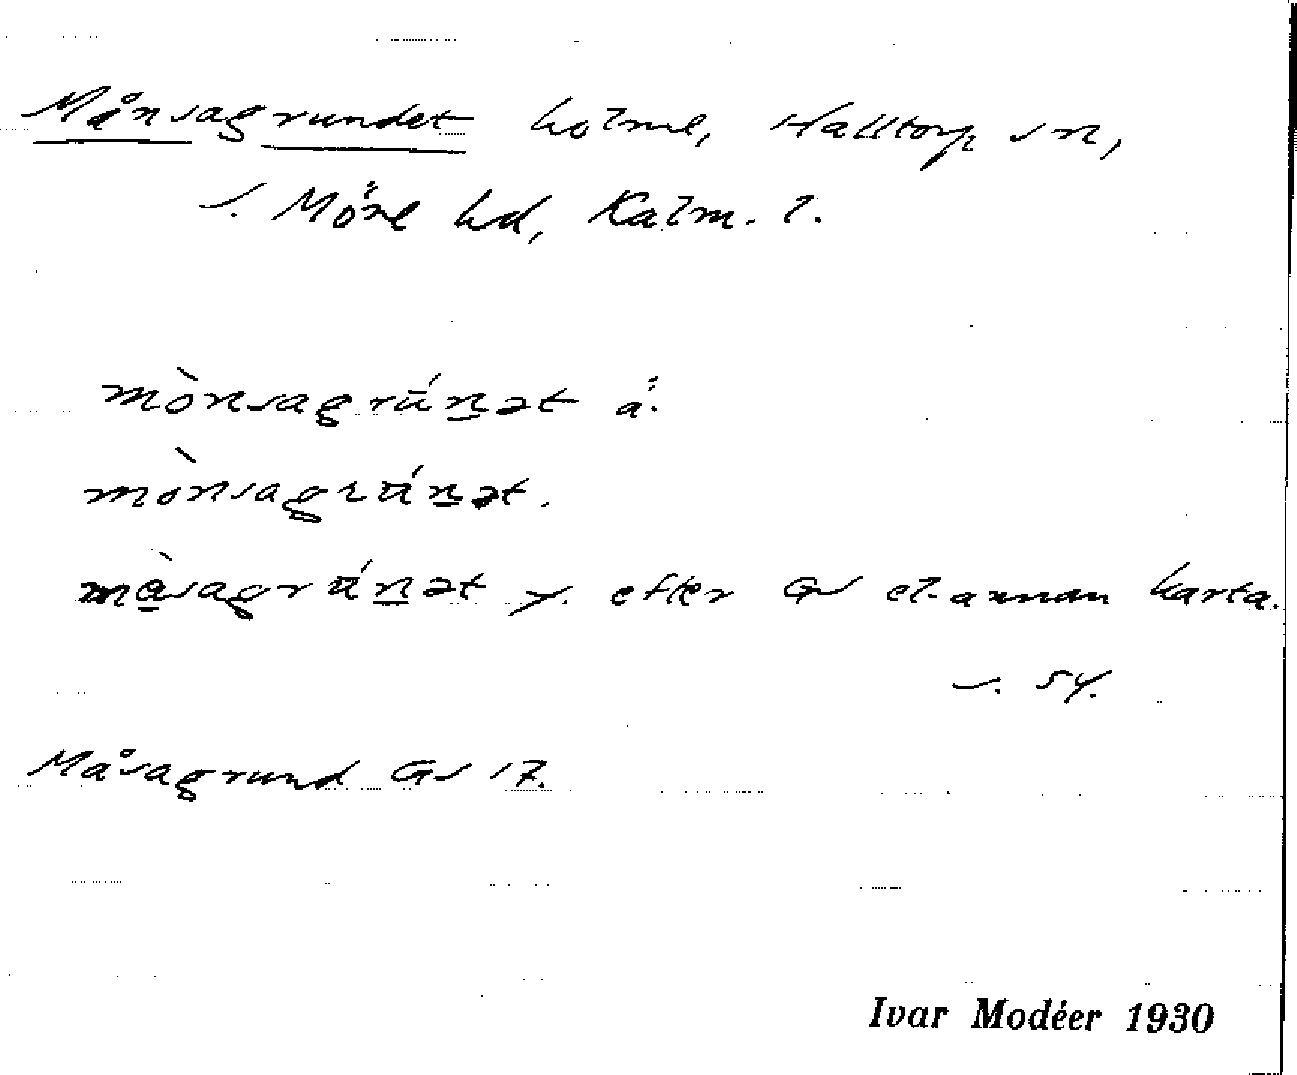 Månsagrundet holme, Halltorp sn,
s. Möre hd, Kalm. l.
mònsagrúnət ä.
mònsagrúnət.
måsagrúnət y. efter GS el. annan karta.
s. 54.
Måsagrund GS 17.
Ivar Modéer 1930